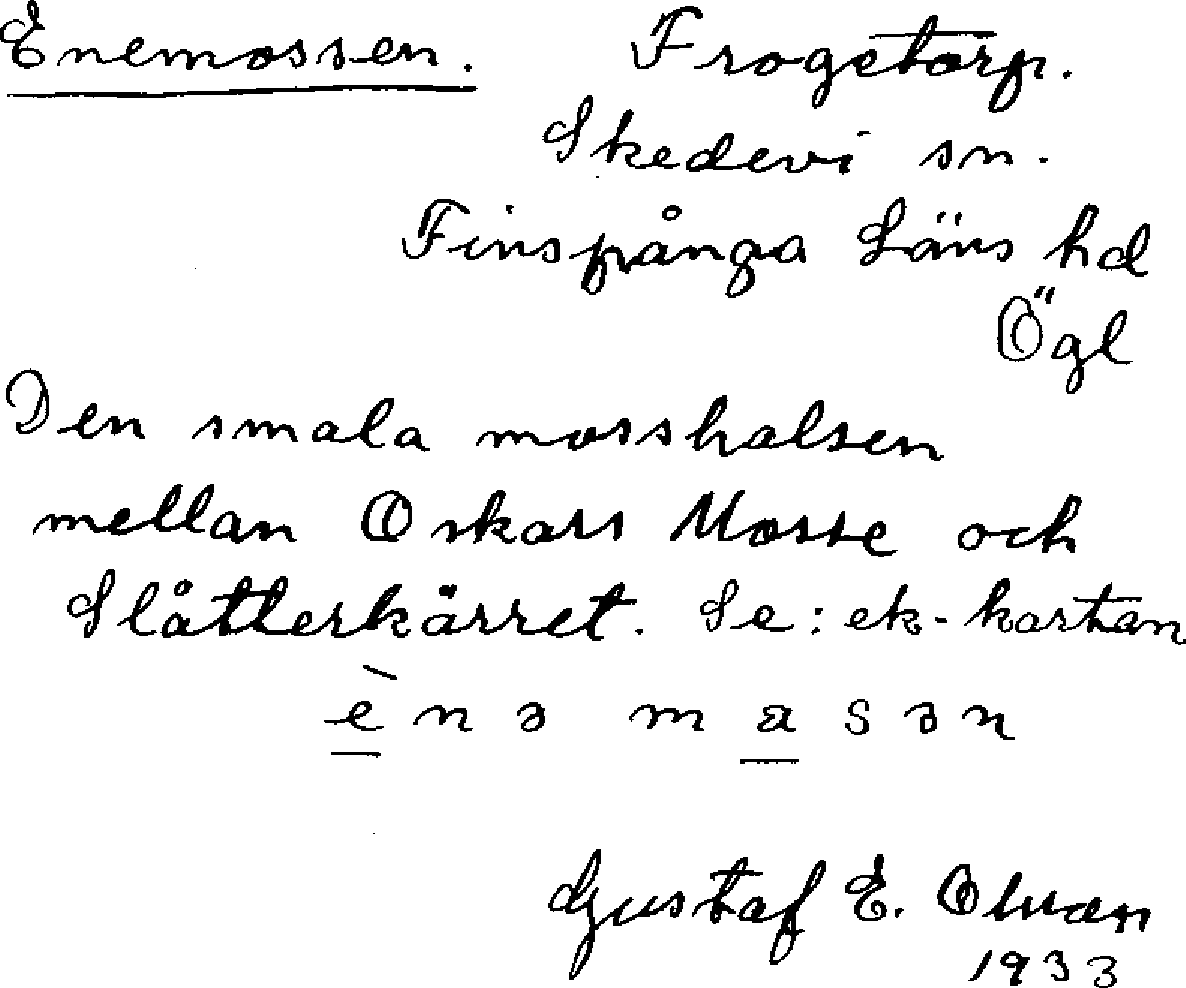 Enemossen. Frogetorp.
Skedevi sn.
Finspånga Läns hd
Ögl
Den smala mosshalsen
mellan Oskars Mosse och
Slåtterkärret. Se: ek-kartan
è n ə m a s ə n
Gustaf E.
1933